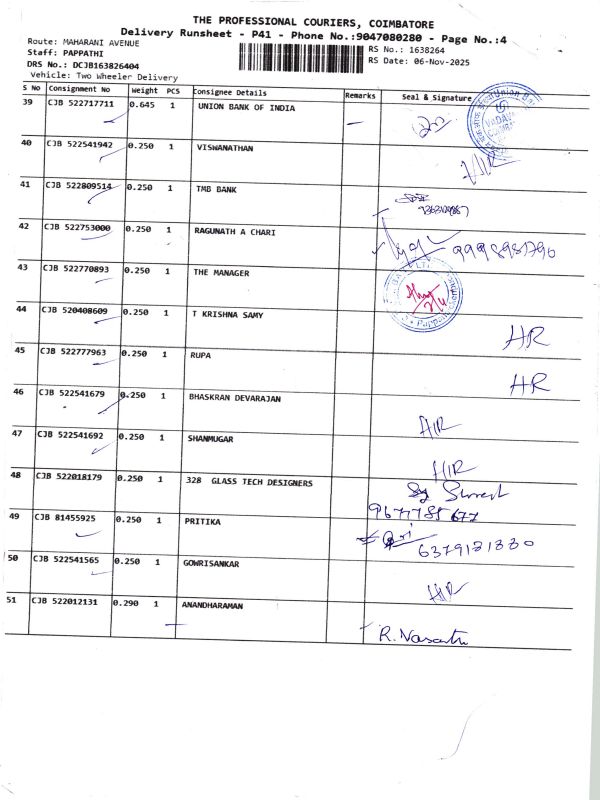 THE PROFESSIONAL COURIERS, COIMBATORE
Delivery Runsheet - P41 - Phone No.:9047080280 - Page No.:4
Route: MAHARANI AVENUE
Staff: PAPPATHI
DRS No.: DCJB163826404
Vehicle: Two Wheeler Delivery
RS No.: 1638264
RS Date: 06-Nov-2025
S No Consignment No Weight PCS Consignee Details Remarks Seal & Signature
39 CJB 522717711 0.645 1 UNION BANK OF INDIA
40 CJB 522541942 0.250 1 VISWANATHAN
41 CJB 522809514 0.250 1 TMB BANK
42 CJB 522753000 0.250 1 RAGUNATH A CHARI
43 CJB 522770893 0.250 1 THE MANAGER
44 CJB 520408609 0.250 1 T KRISHNA SAMY HR
45 CJB 522777963 0.250 1 RUPA HR
46 CJB 522541679 0.250 1 BHASKRAN DEVARAJAN
47 CJB 522541692 0.250 1 SHANMUGAR
48 CJB 522018179 0.250 1 328 GLASS TECH DESIGNERS
49 CJB 81455925 0.250 1 PRITIKA
50 CJB 522541565 0.250 1 GOWRISANKAR
51 CJB 522012131 0.290 1 ANANDHARAMAN